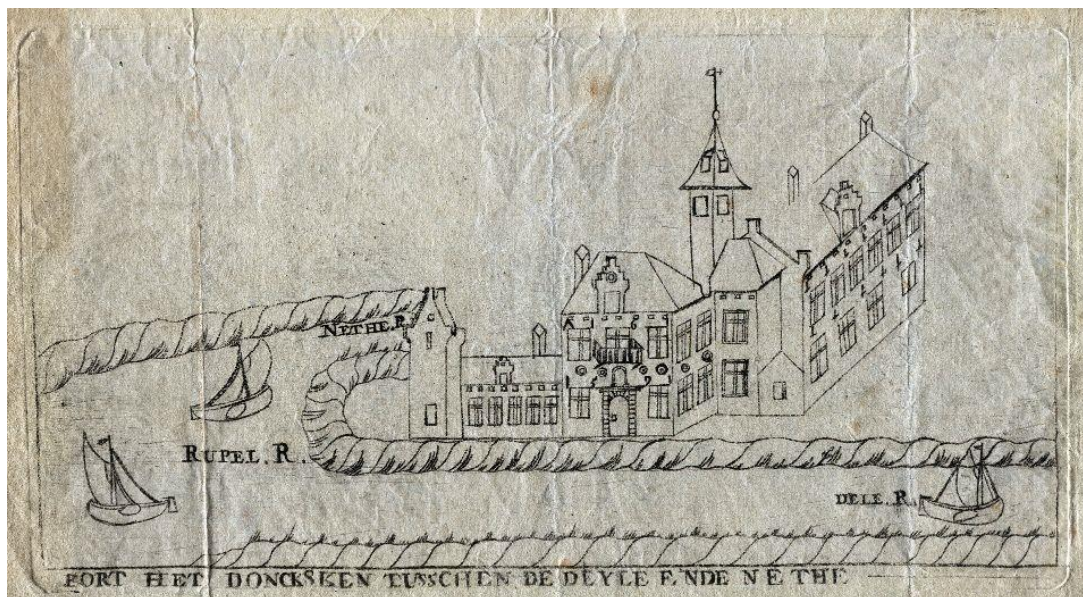 NETHE. R.
RUPEL. R.
DELE. R.
FORT HET DONCKSKEN TUSSCHEN DE DEYLE ENDE NETHE